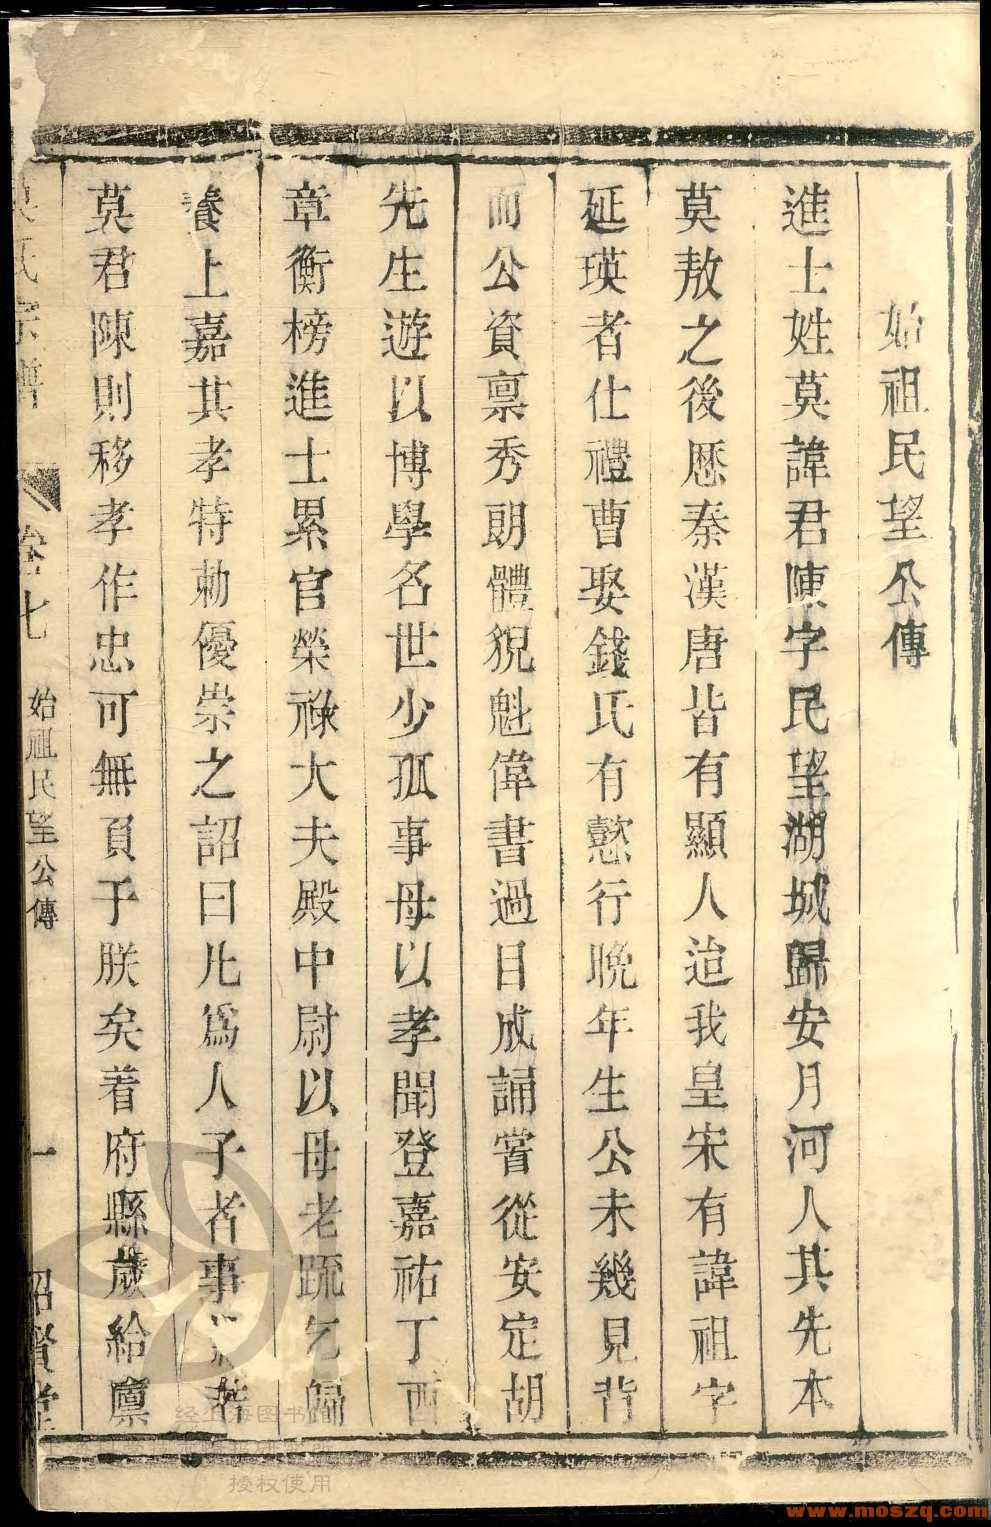 始祖民望公傳
進士姓莫諱君陳字民望湖城歸安月河人其先本
莫敖之後歷秦漢唐皆有顯人迨我皇宋有諱祖字
延瑛者仕禮曹娶錢氏有懿行晩年生公未幾見背
而公資禀秀朗體貌魁偉書過目成誦嘗從安定胡
先生遊以博學名世少孤事母以孝聞登嘉祐丁酉
章衡榜進士累官榮祿大夫殿中尉以母老疏乞歸
養上嘉其孝特勅優崇之詔曰凡爲人子者事 若
莫君陳則移孝作忠可無負于朕矣着府縣歲給廪
氏宗譜
卷七
始祖民望公傳
一
昭賢堂
经上海图书馆
授权使用
www.moszq.com